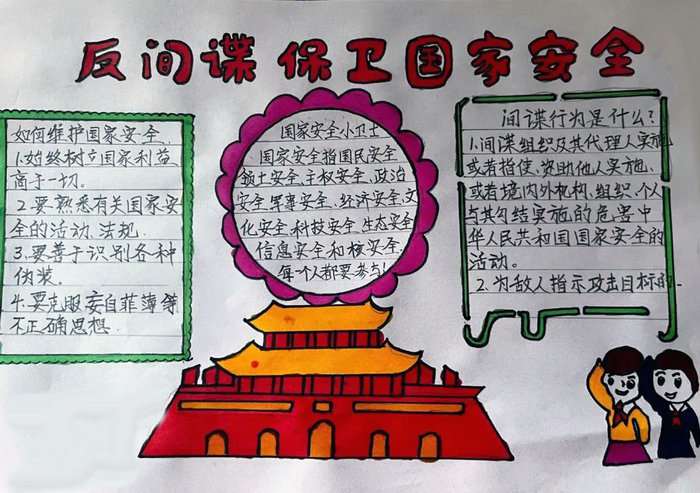 反间谍 保卫国家安全
如何维护国家安全.
1.始终树立国家利益
高于一切.
2.要熟悉有关国家安
全的活动.法规.
3.要善于识别各种
伪装.
4.要克服妄自菲薄等
不正确思想.
国家安全小卫士
国家安全指国民安全
领土安全、主权安全、政治
安全、军事安全、经济安全、文
化安全、科技安全、生态安全
信息安全和核安全.
每一个人都要参与!
间谍行为是什么?
1.间谍组织及其代理人实施
或者指使、资助他人实施、
或者境内外机构、组织、个人
与其勾结实施的危害中
华人民共和国国家安全的
活动。
2.为敌人指示攻击目标的.